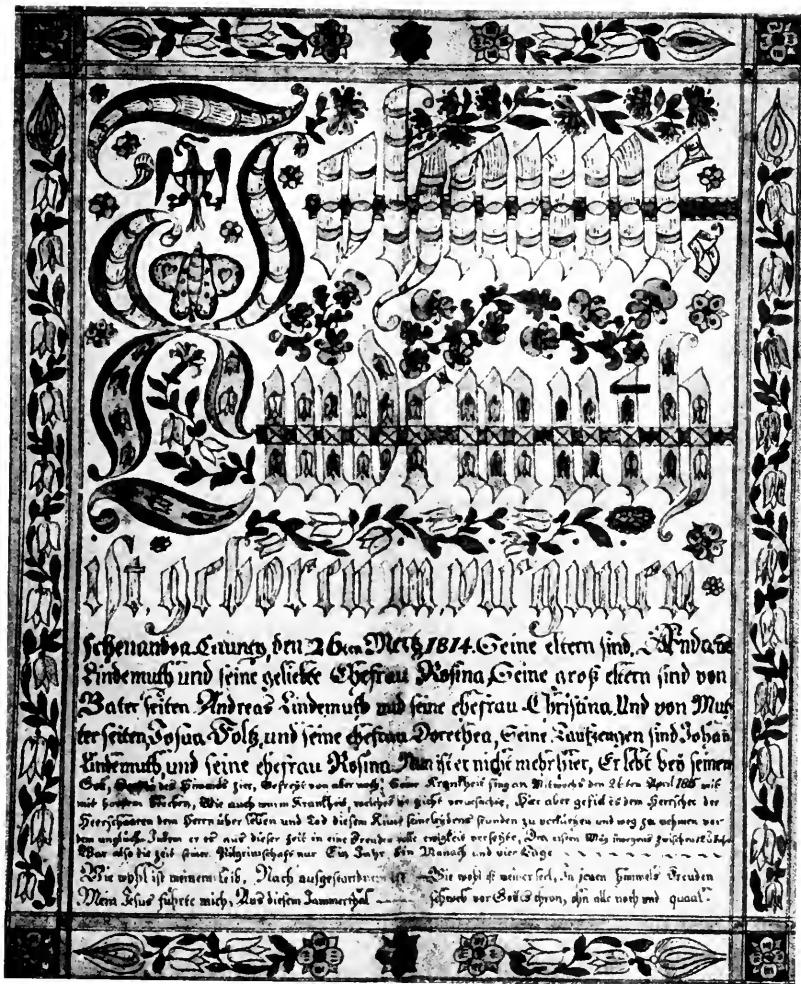 Lindemuth
ist, geboren in, virginien
schenandoa County, den 26ten Mertz 1814. Seine eltern sind,
Lindemuth und seine geliebte Ehefrau Rosina, Seine groß eltern sind von
Vater seiten Andreas Lindemuth und seine ehefrau Christina. Und von Mut
ter seiten, Josua Foltz, und seine ehefrau Dorethea, Seine Taufzeugen sind Johan
Lindemuth, und seine ehefrau Rosina. Nun ist er nicht mehr hier, Er lebt bey seinem
Gott, des Himels Zier, Befreyt von aller noth. Seine Krankheit fing an Mitwochs den April 1815 mit
mit Stichen, Wie auch wurm Krankheit, welches die gicht verursachte, Hier aber gefiel es dem Herrscher der
Heerschaaren dem Herrn über leben und Tod diesem Kind seine leidens stunden zu verkürzen und weg zu nehmen vor
dem unglück, Indem er es aus dieser Zeit in eine Freuden volle ewigkeit versetzte, Den ersten May morgens zwischen
War also die Zeit seiner Pilgrimschaft nur Ein Jahr, Ein Monath und vier Tage
Wie wohl ist meinem leib, Nach ausgestandnem Wie wohl ist meiner seel, In jenen himmels Freuden
Mein Jesus führte mich, Aus diesem Jammerthal schweb vor Gottes thron, ohn alle noth und quaal.